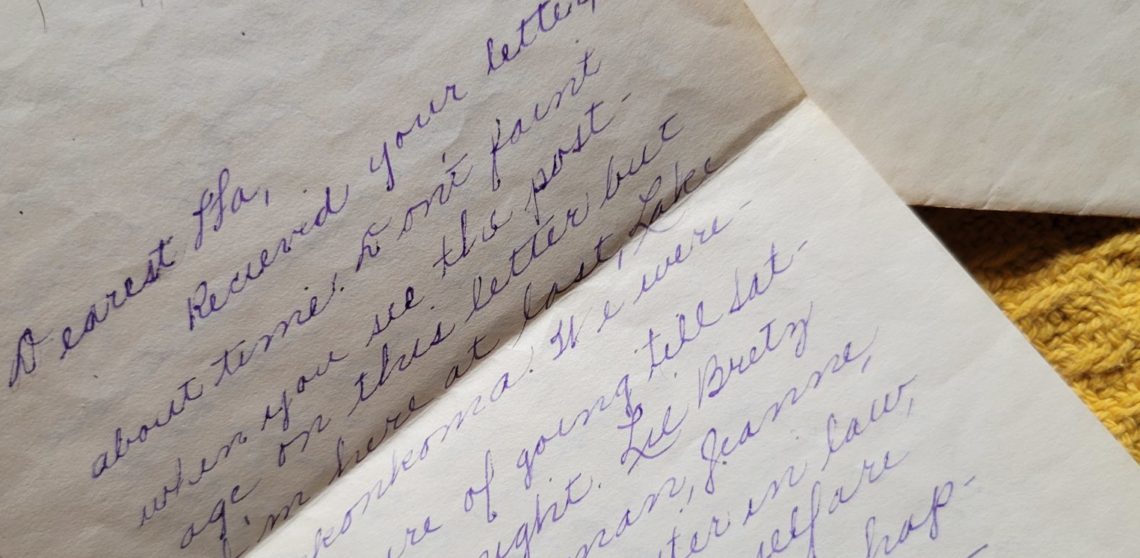 Dearest Ila,
Recievid your letter,
about time! Don't faint
when you see the post-
age on this letter but
I'm here at last, Lake
konkoma. We were-
of going till Sat-
Lil Bretz
Jeanne,
in law,
hap-